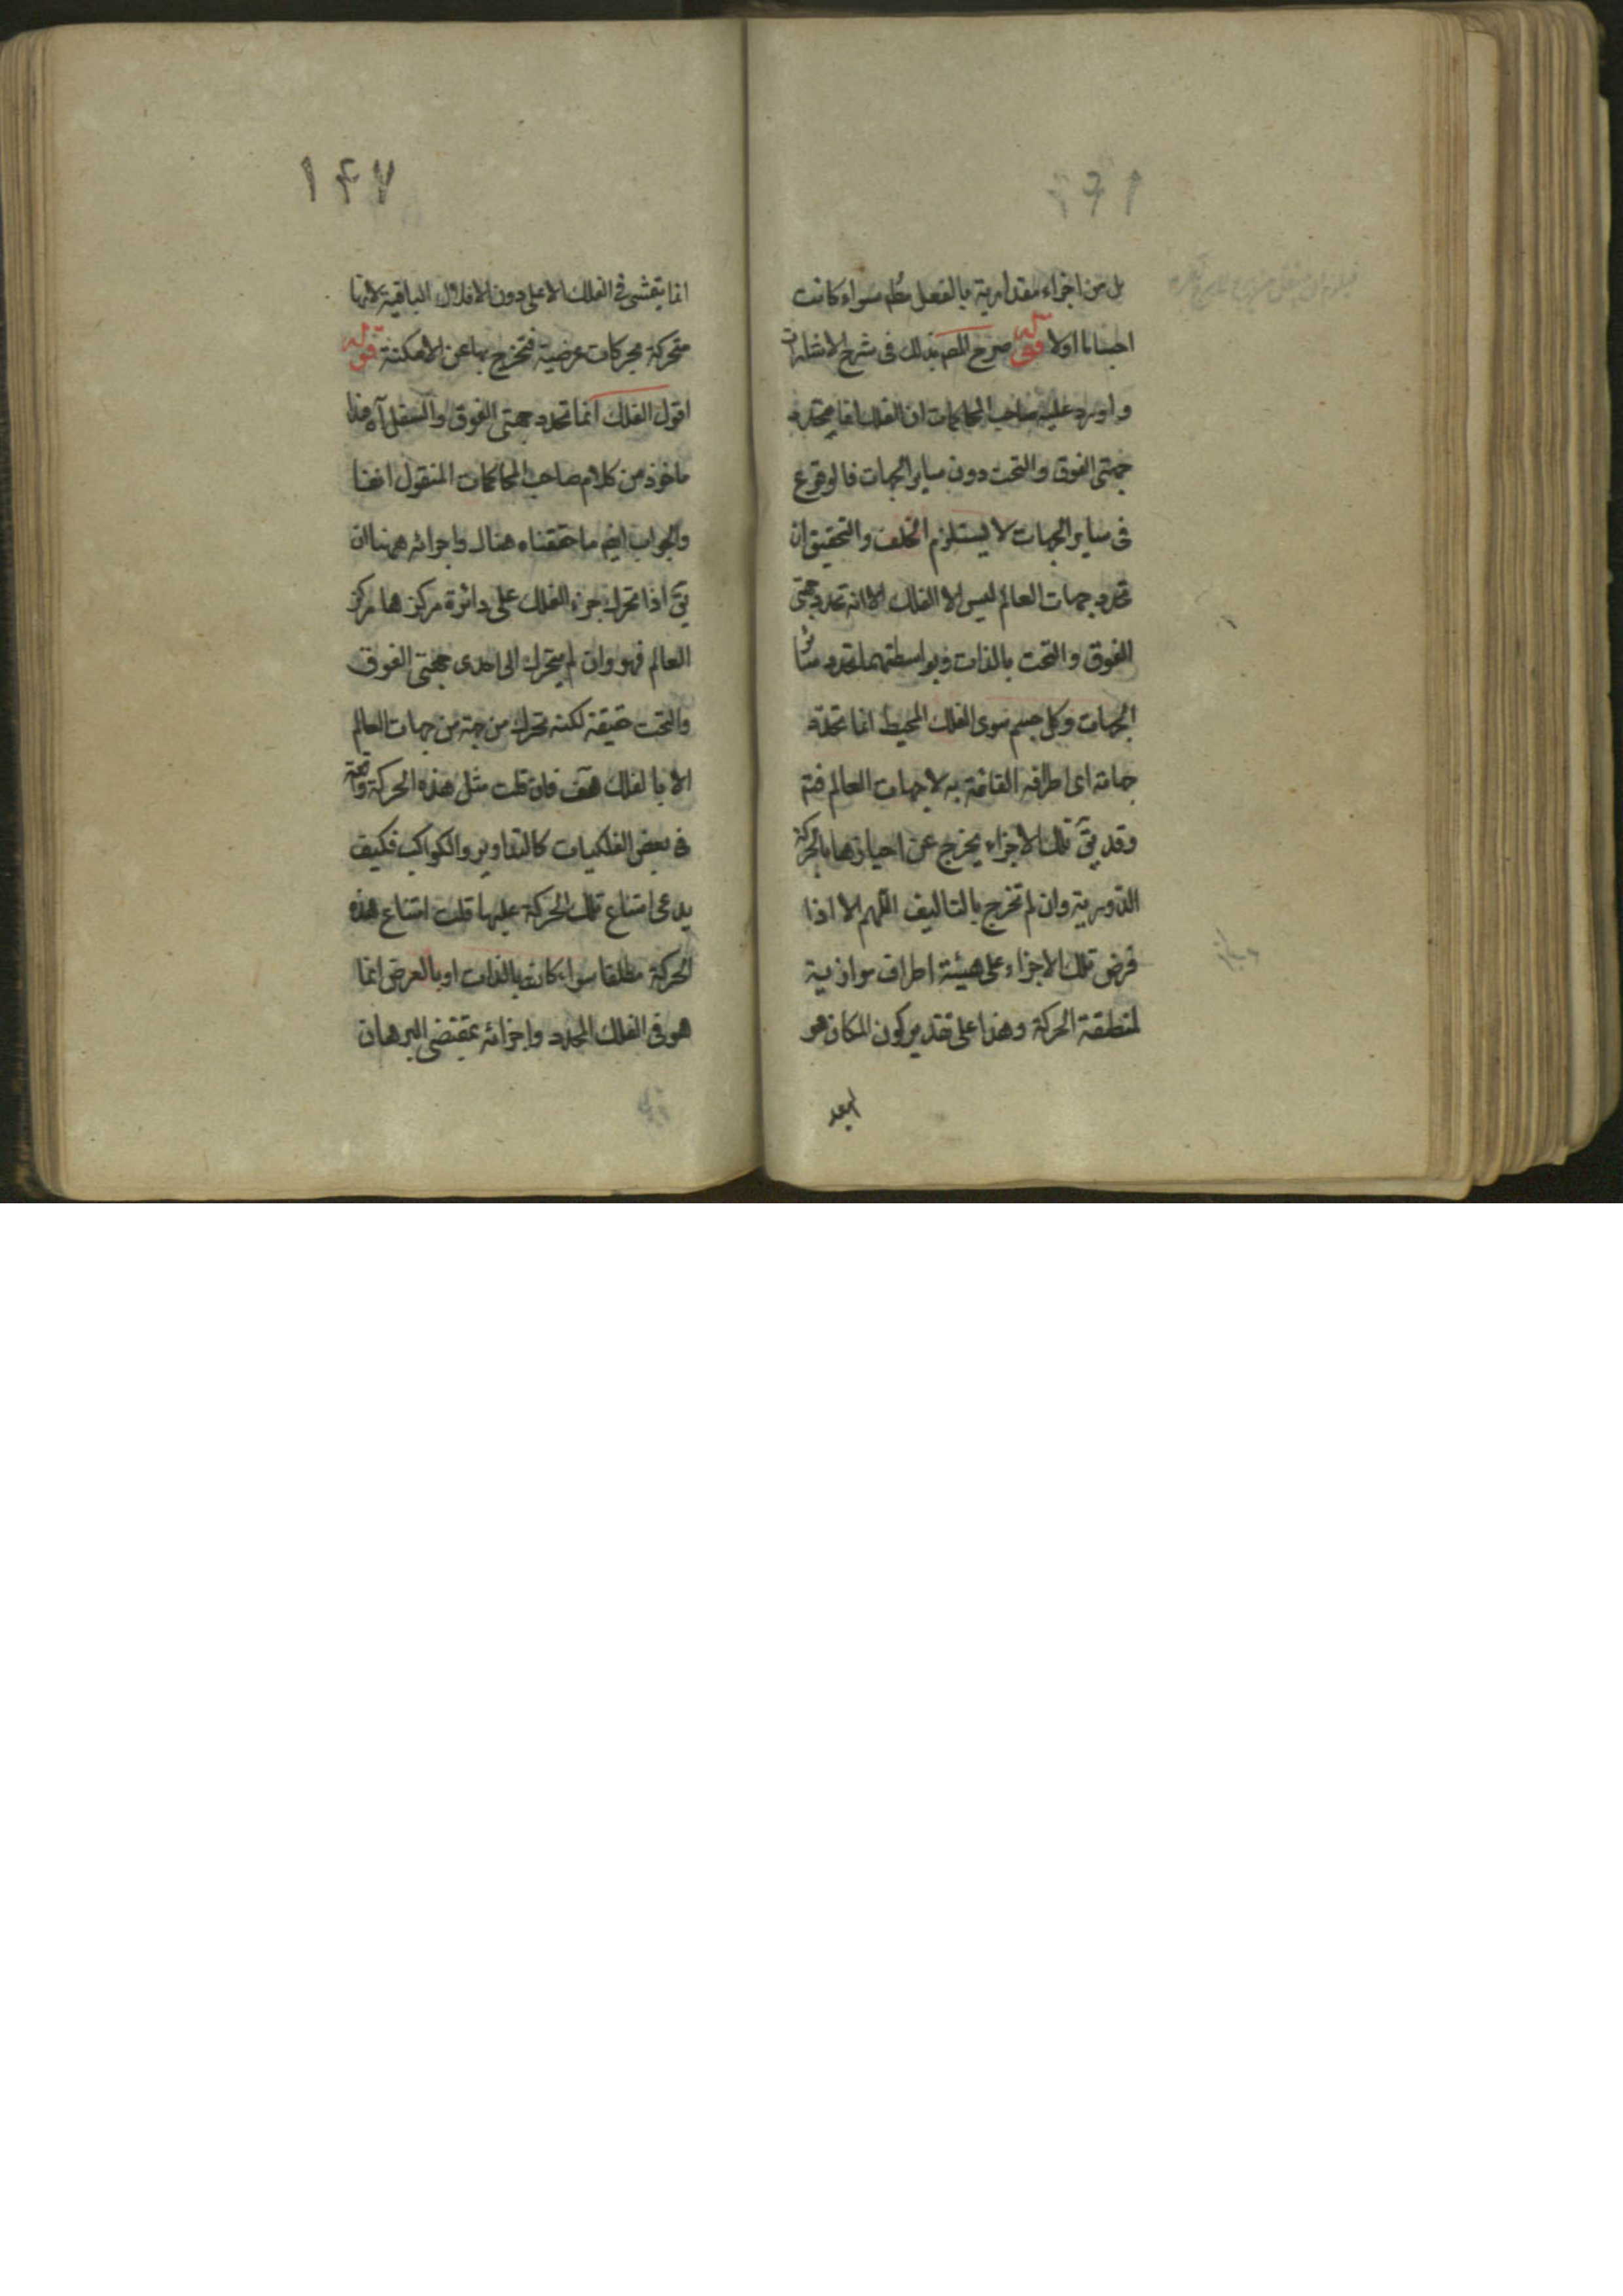 بل من اجزاء مقدارية بالفعل مطم سواء كانت
اجساما اولا قوله صرح المصم بذلك فى شرح الاشارات
واورد عليه صاحب المحاكمات ان الفلك انما يحدد به
جهتى الفوق والتحت دون ساير الجهات فالوقوع
فى ساير الجهات لا يستلزم الخلف والتحقيق ان
تحدد جهات العالم ليس الا الفلك الا انه تحدد جهتى
الفوق والتحت بالذات وبواسطتهما تحدد سائر
الجهات وكل جسم سوى الفلك المحيط انما تحدد
جهاته اى اطرافه القائمة به لا جهات العالم فتم
وقد يق تلك الاجزاء يخرج عن احيازها بالحركة
الدورية وان لم تخرج بالتاليف اللهم الا اذا
فرض تلك الاجزاء على هيئة اطراف موازية
لمنطقة الحركة وهذا على تقدير كون المكان هو
البعد
١٤٧
انما يتمشى فى الفلك الاعلى دون الافلاك الباقية لانها
متحركة بحركات عرضية فتخرج بها عن الامكنة قوله
اقول الفلك انما تحدد جهتى الفوق والسفل آه هذا
ماخوذ من كلام صاحب المحاكمات المنقول انفا
والجواب ايضم ما حققناه هناك واجرائه ههنا ان
يق اذا تحرك جزء الفلك على دائرة مركزها مركز
العالم فهو وان لم يتحرك الى احدى جهتى الفوق
والتحت حقيقة لكنه تحرك من جهة من جهات العالم
الا بالفلك هف فان قلت مثل هذه الحركة واقعة
فى بعض الفلكيات كالتداوير والكواكب فكيف
يدعى امتناع تلك الحركة عليها قلت امتناع هذه
الحركة مطلقا سواء كانت بالذات او بالعرض انما
هو فى الفلك المحدد واجزائه بمقتضى البرهان